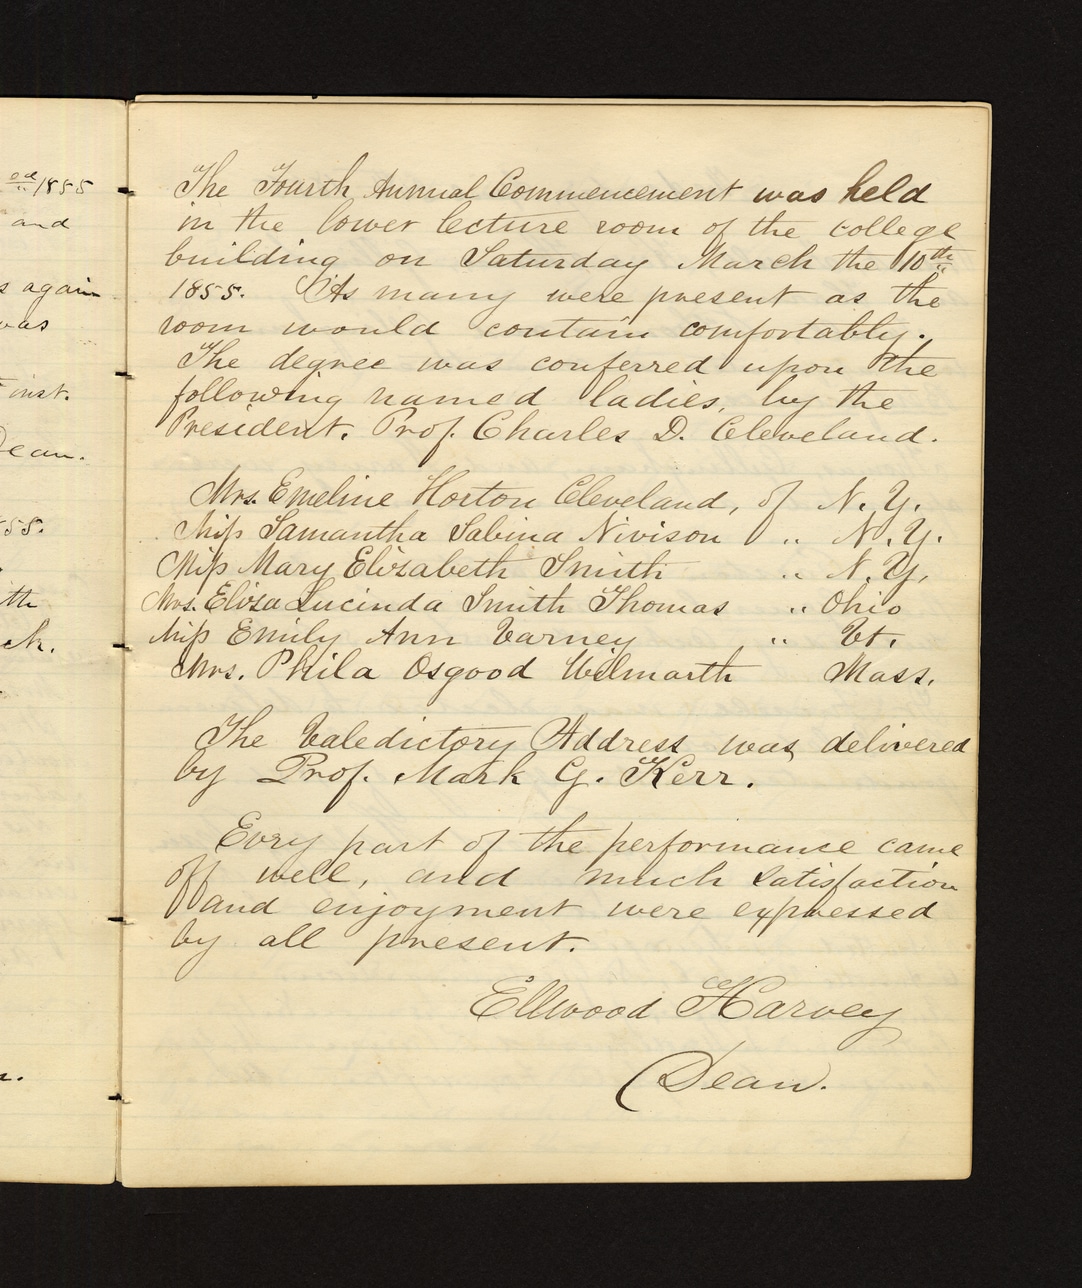 ed 1855
and
again
was
inst.
Dean.
55.
ith
ck.
The Fourth Annual Commencement was held
in the lower lecture room of the college
building on Saturday March the 10th
1855. As many were present as the
room would contain comfortably.
The degree was conferred upon the
following named ladies, by the
President. Prof. Charles D. Cleveland.
Mrs. Emeline Horton Cleveland, of N. Y.
Miss Samantha Sabina Nivison " N. Y.
Miss Mary Elizabeth Smith " N. Y,
Mrs. Eliza Lucinda Smith Thomas " Ohio
Miss Emily Ann Varney " Vt.
Mrs. Phila Osgood Wilmarth Mass.
The Valedictory Address was delivered
by Prof. Mark G. Kerr.
Evry part of the performance came
off well, and much satisfaction
and enjoyment were expressed
by all present.
Ellwood Harvey
Dean.